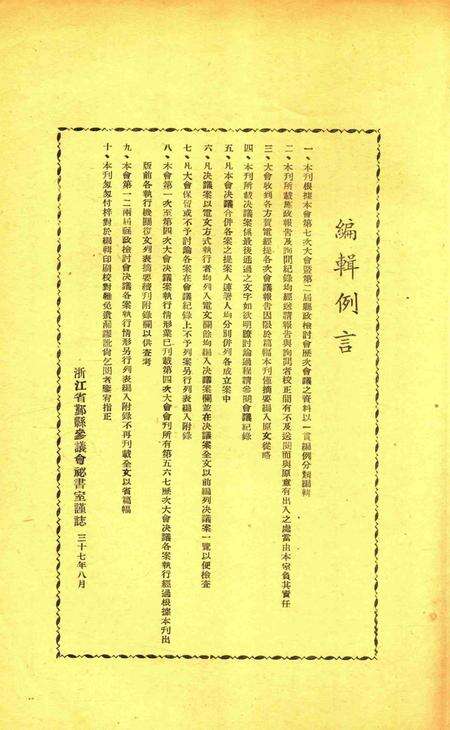 編輯例言
一、本刊根據本會第七次大會暨第二屆縣政檢討會歷次會議之資料以一貫編例分類編輯
二、本刊所載縣政報告及詢問紀錄均經送請報告與詢問者校正間有不及送閱而與原意有出入之處當由本室負其責任
三、大會收到各方賀電經提各次會議報告因限於篇幅本刊僅摘要編入原文從略
四、本刊所載决議案係最後通過之文字如欲明瞭討論過程請參閱會議紀錄
五、凡本會决議合併各案之提案人連署人均分別併列各成立案中
六、凡决議案以電文方式執行者均列入電文欄餘均編入决議案欄並在决議案全文以前編列决議案一覽以便檢查
七、凡大會保留或不予討論各案在會議紀錄上不予列案另行列表編入附錄
八、本會第一次至第四次大會决議案執行情形業已刊載第四次大會會刊所有第五六七歷次大會决議各案執行經過根據本刊出
版前各執行機關復文列表摘要續刊附錄欄以供查考
九、本會第一二兩屆縣政檢討會决議各案執行情形另行列表編入附錄不再刊載全文以省篇幅
十、本刊匆匆付梓對於編輯印刷校對錯免遺漏謬訛尚乞閱者鑒宥指正
浙江省鄞縣參議會秘書室謹誌 三十七年八月